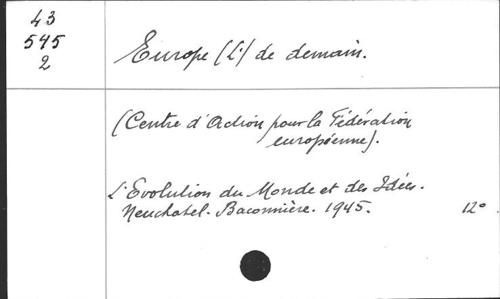 43
545
2
Europe (L') de demain.
(Centre d'Action pour la Fédération
européenne).
L'Evolution du Monde et des Idées.
Neuchatel. Baconnière. 1945. 12°